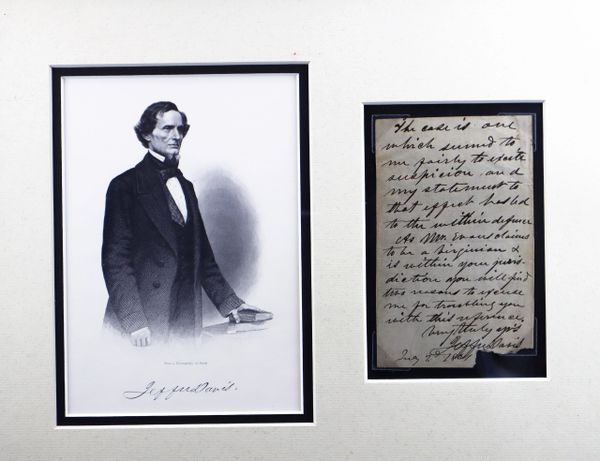 From a Photograph
Jeff'n Davis.
The case is one
which seemed to
me fairly to excite
suspicion and
my statement to
that effect has led
to the within defence
As Mr. Evans claims
to be a Virginian &
is within your juris-
diction you will find
two reasons to excuse
me for troubling you
with this reference
Very truly yr's
Jeff'n Davis
2d